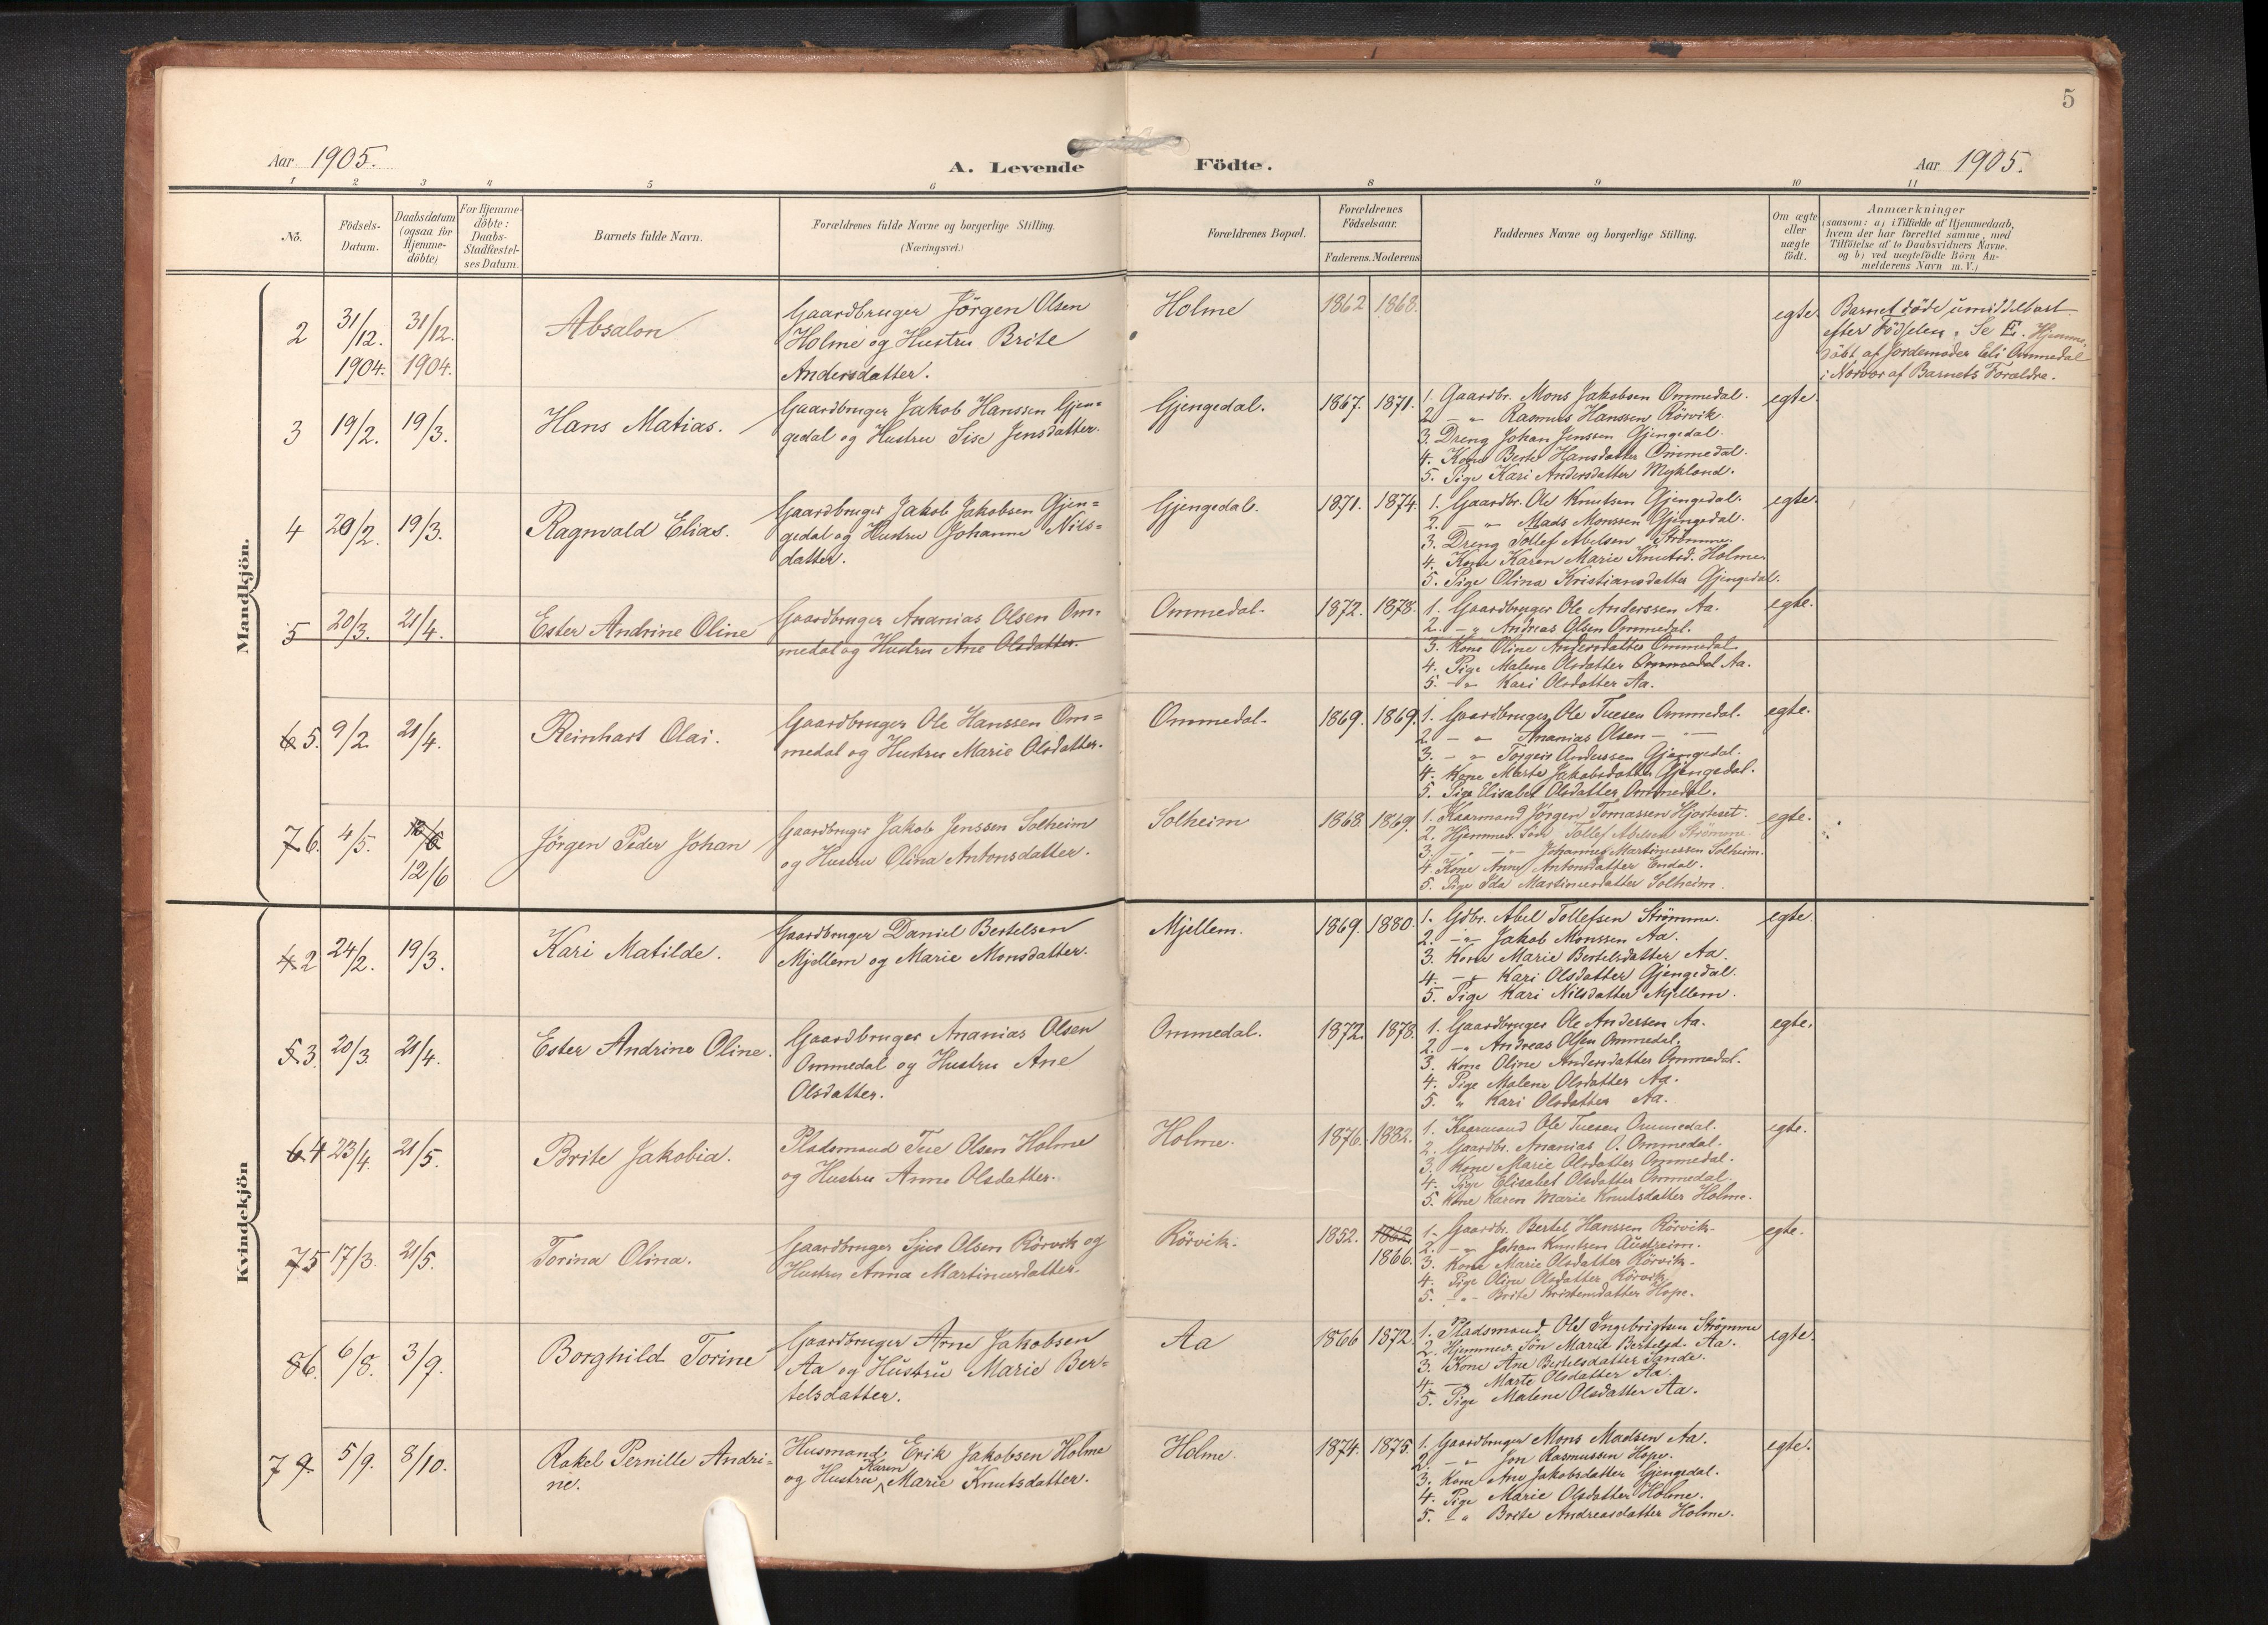 5
Aar 1905.
A. Levende Födte.
Aar 1905.
1 2 3 4 5 6 8 9 10 11
No.
Födsels-
Datum.
Daabsdatum
(ogsaa for
Hjemme-
döbte)
For Hjemme-
döbte:
Daabs-
Stadfæstel-
ses Datum.
Barnets fulde Navn.
Forældrenes fulde Navne og borgerlige Stilling.
(Næringsvei.)
Forældrenes Bopæl.
Forældrenes
Födselsaar.
Faderens. Moderens
Faddernes Navne og borgerlige Stilling.
Om ægte
eller
uægte
födt.
Anmærkninger
(saasom: a) i Tilfælde af Hjemmedaab,
hvem der har forrettet samme, med
Tilföielse af to Daabsvidners Navne.
og b) ved uægtefödte Börn An-
melderens Navn m. V.)
Mandkjön.
2
31/12. 1904.
31/12. 1904.
Absalon
Gaardbruger Jörgen Olsen
Holme og Hustru Brite
Andersdatter.
Holme
1862 1868.
egte.
Barnet döde umiddelbart
efter Födselen. Se E. Hjemme-
döbt af Jordemoder Eli Ommedal
i Nærvær af Barnets Forældre.
3
19/2.
19/3.
Hans Matias.
Gaardbruger Jakob Hanssen Gjen=
gedal og Hustru Sise Jensdatter.
Gjengedal.
1867. 1871.
1. Gaardbr. Mons Jakobsen Ommedal.
2. — " Rasmus Hanssen Rörvik.
3. Dreng Johan Jenssen Gjengedal.
4. Kone Berte Hansdatter Ommedal.
5. Pige Kari Andersdatter Mykland.
egte.
4
20/2.
19/3.
Ragnvald Elias.
Gaardbruger Jakob Jakobsen Gjen=
gedal og Hustru Johanne Nils=
datter.
Gjengedal.
1871. 1874.
1. Gaardbr. Ole Knutsen Gjengedal.
2. — " Mads Monssen Gjengedal.
3. Dreng Tollef Abelsen Strömme.
4. Kone Karen Marie Knutsd. Holme.
5. Pige Olina Kristiansdatter Gjengedal.
egte.
5
20/3.
21/4.
Ester Andrine Oline
Gaardbruger Ananias Olsen Om=
medal og Hustru Ane Olsdatter.
Ommedal.
1872. 1878.
1. Gaardbruger Ole Anderssen Aa.
2. — " Andreas Olsen Ommedal.
3. Kone Oline Andersdatter Ommedal.
4. Pige Malene Olsdatter Ommedal Aa.
5. — " Kari Olsdatter Aa.
egte.
6 5.
9/2
21/4.
Reinhart Olai.
Gaardbruger Ole Hanssen Om=
medal og Hustru Marie Olsdatter.
Ommedal.
1869. 1869.
1. Gaardbruger Ole Tuesen Ommedal.
2. — " Ananias Olsen — " —
3. — " Torgeir Anderssen Gjengedal.
4. Kone Marte Jakobsdatter Gjengedal.
5. Pige Elisabet Olsdatter Ommedal.
egte.
7 6.
4/5.
12/6
12/6
Jörgen Peder Johan
Gaardbruger Jakob Jenssen Solheim
og Hustru Olina Antonsdatter.
Solheim
1868 1869.
1. Kaarmand Jörgen Tomassen Hjorteset.
2. Hjemmev. Sön Tollef Abelsen Strömme.
3. — " — " — Johannes Martinussen Solheim.
4. Kone Anne Antonsdatter Endal.
5. Pige Ida Martinusdatter Solheim.
egte.
Kvindekjön
4 2
24/2.
19/3.
Kari Matilde.
Gaardbruger Daniel Bertelsen
Mjellem og Marie Monsdatter.
Mjellem.
1869. 1880.
1. Gdbr. Abel Tollefsen Strömme.
2. — " — Jakob Monssen Aa.
3. Kone Marie Bertelsdatter Aa.
4. — " Kari Olsdatter Gjengedal.
5. Pige Kari Nilsdatter Mjellem.
egte.
5 3.
20/3
21/4.
Ester Andrine Oline.
Gaardbruger Ananias Olsen
Ommedal og Hustru Ane
Olsdatter.
Ommedal.
1872. 1878.
1. Gaardbruger Ole Andersen Aa.
2. — " Andreas Olsen Ommedal.
3. Kone Oline Andersdatter Ommedal.
4. Pige Malene Olsdatter Aa.
5. " Kari Olsdatter Aa.
egte.
6 4
23/4.
21/5.
Brite Jakobia.
Pladsmand Tue Olsen Holme
og Hustru Anne Olsdatter.
Holme.
1876. 1882.
1. Kaarmand Ole Tuesen Ommedal.
2. Gaardbr. Ananias O. Ommedal.
3. Kone Marie Olsdatter Ommedal.
4. Pige Elisabet Olsdatter Ommedal.
5. Kone Karen Marie Knutsdatter Holme.
egte.
7 5
17/3.
21/5.
Torina Olina.
Gaardbruger Sjur Olsen Rörvik og
Hustru Anna Martinusdatter.
Rörvik.
1852. 1862
1866.
1. Gaardbr. Bertel Hanssen Rörvik.
2. — " Johan Knutsen Austreim.
3. Kone Marie Olsdatter Rörvik.
4. Pige Oline Olsdatter Rörvik.
5. — " — Brite Kristensdatter Hope.
egte.
8 6.
6/8.
3/9.
Borghild Torine
Gaardbruger Arne Jakobsen
Aa og Hustru Marie Ber=
telsdatter.
Aa
1866 1872.
1. Pladsmand Ole Ingebrigtsen Strömme
2. Hjemmev. Sön Marie Bertelsd. Aa.
3. Kone Ane Bertelsdatter Sande.
4. — " Marte Olsdatter Aa.
5. Pige Malene Olsdatter Aa.
egte.
7 9.
5/9.
8/10.
Rakel Pernille Andri=
ne.
Husmand Erik Jakobsen Holme
og Hustru Karen Marie Knutsdatter.
Holme.
1874. 1875.
1. Gaardbruger Mons Madsen Aa.
2. — " Jon Rasmussen Hope.
3. Kone Ane Jakobsdatter Gjengedal.
4. Pige Marie Olsdatter Holme.
5. — " Brite Andreasdatter Holme.
egte.